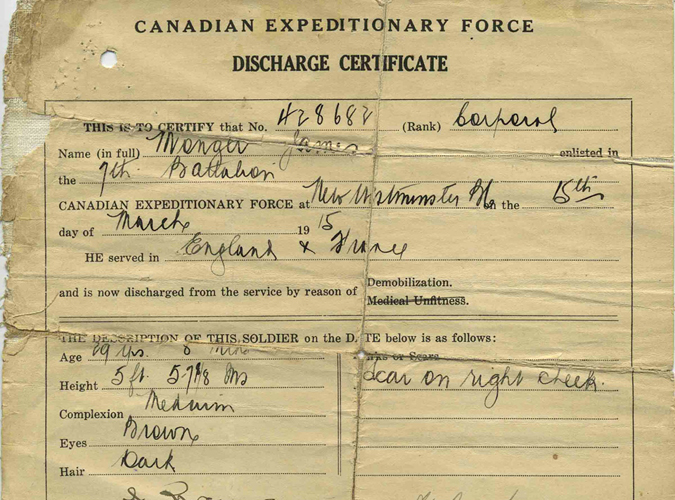 CANADIAN EXPEDITIONARY FORCE
DISCHARGE CERTIFICATE
THIS IS TO CERTIFY that No. 428682 (Rank) Corporal
Name (in full) Monger James enlisted in
the 7th Battalion
CANADIAN EXPEDITIONARY FORCE at New Westminster BC on the 15th
day of March 1915
HE served in England & France
and is now discharged from the service by reason of Demobilization.
Medical Unfitness.
THE DESCRIPTION OF THIS SOLDIER on the DATE below is as follows:
Age 29 yrs. 8 or Scars
Height 5 ft. Scar on right cheek.
Complexion Medium
Eyes Brown
Hair Dark